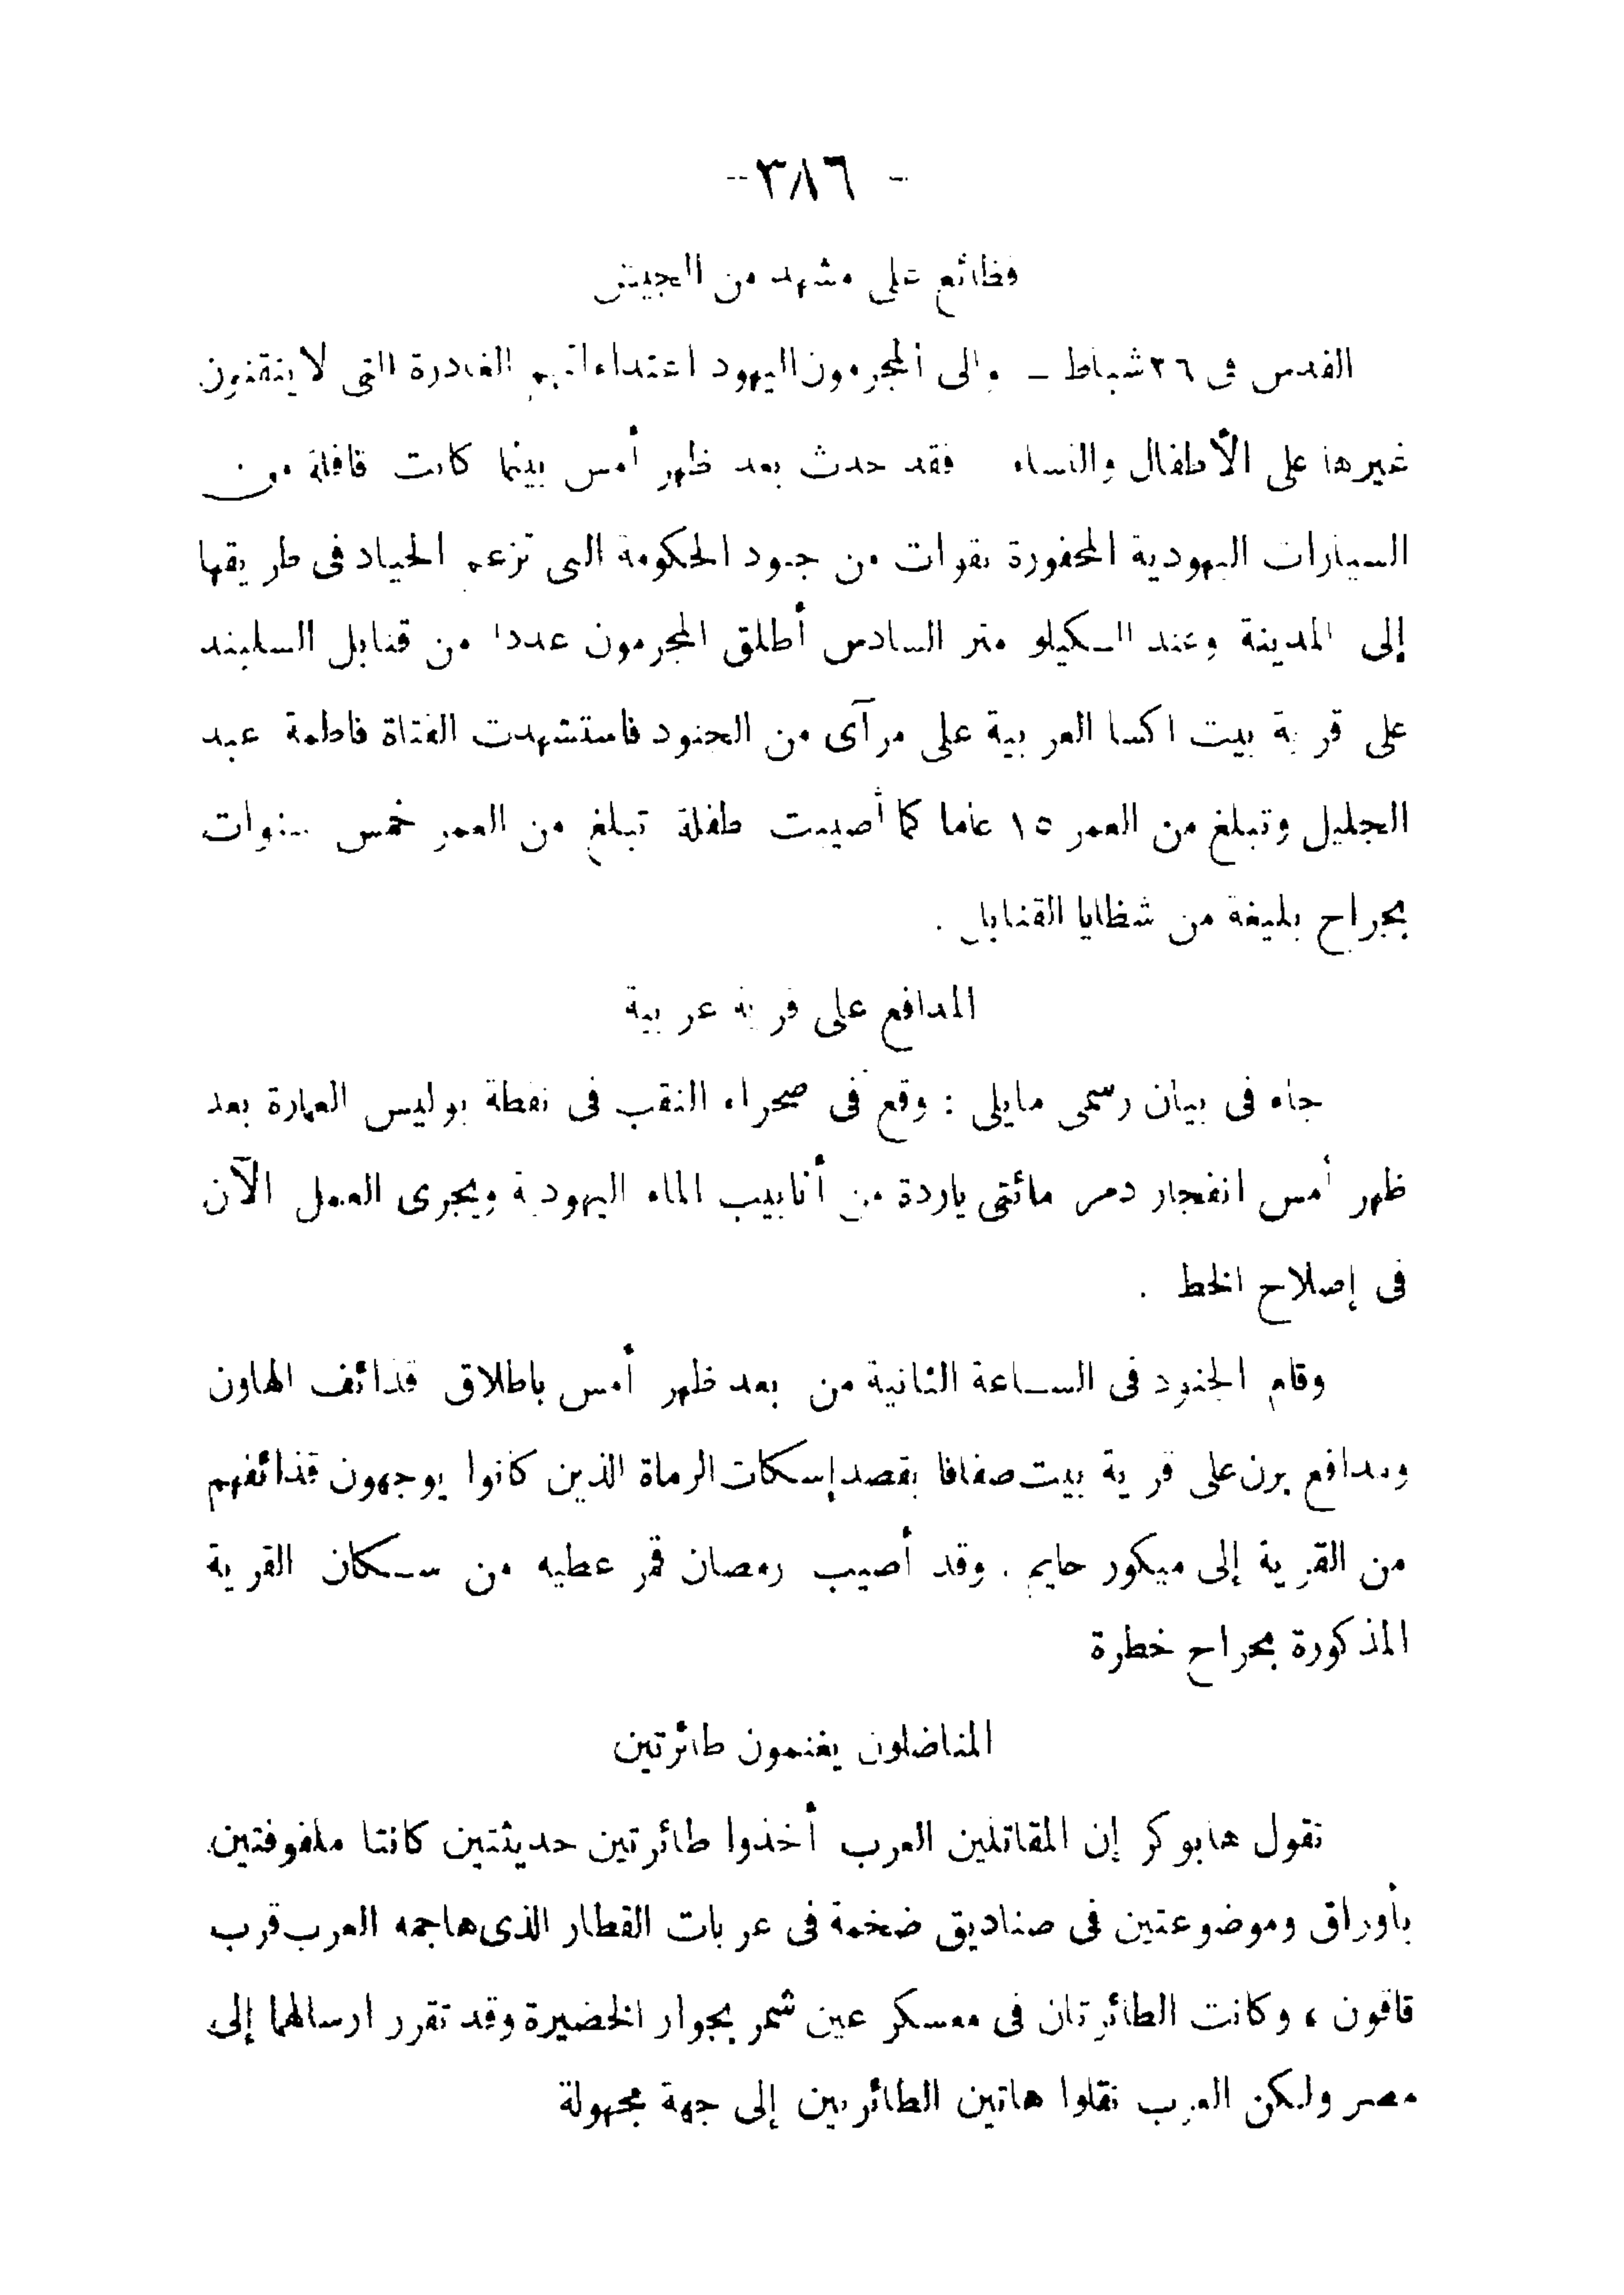 - ٣٨٦ -
فظائع على مشهد من الجيش
القدس فى ٢٦ شباط - والى المجرمون اليهود اعتداءاتهم الغادرة التى لا يتقنون
غيرها على الأطفال والنساء فقد حدث بعد ظهر أمس بينما كانت قافلة من
السيارات اليهودية المخفورة بقوات من جنود الحكومة التى تزعم الحياد فى طريقها
إلى المدينة وعند الكيلو متر السادس أطلق المجرمون عددا من قنابل السلبند
على قرية بيت اكسا العربية على مرآى من الجنود فاستشهدت الفتاة فاطمة عبد
الجليل وتبلغ من العمر ١٥ عاما كما أصيبت طفلة تبلغ من العمر خمس سنوات
بجراح بليغة من شظايا القنابل .
المدافع على قرية عربية
جاء فى بيان رسمى مايلى : وقع فى صحراء النقب فى نقطة بوليس العمارة بعد
ظهر أمس انفجار دمر مائتى ياردة من أنابيب الماء اليهودية ويجرى العمل الآن
فى إصلاح الخط .
وقام الجنود فى الساعة الثانية من بعد ظهر أمس باطلاق قذائف الهاون
ومدافع برن على قرية بيت صفافا بقصد إسكات الرماة الذين كانوا يوجهون قذائفهم
من القرية إلى ميكور حايم . وقد أصيب رمضان قمر عطيه من سكان القرية
المذكورة بجراح خطرة
المناضلون يغنمون طائرتين
تقول هابوكر إن المقاتلين العرب أخذوا طائرتين حديثتين كانتا ملفوفتين
بأوراق وموضوعتين فى صناديق ضخمة فى عربات القطار الذى هاجمه العرب قرب
قاقون ، وكانت الطائرتان فى معسكر عين شمر بجوار الخضيرة وقد تقرر ارسالهما إلى
مصر ولكن العرب نقلوا هاتين الطائرتين إلى جهة مجهولة